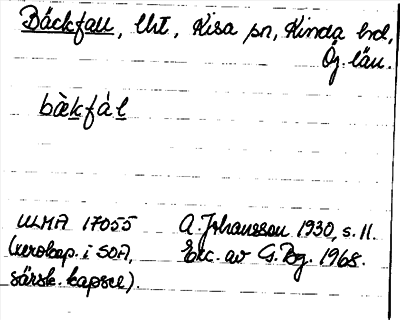 Bäckfall, lht, Kisa sn, Kinda hd,
Ög. län.
bæ̀kfàl
ULMA 17055 A. Johansson 1930, s. 11.
(xerokop. i SOA, Exc. av G. Bg. 1968.
särsk. kapsel).